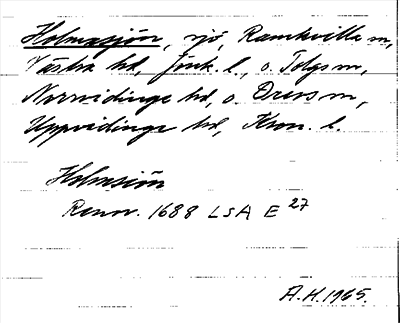 Holmasjön, sjö, Ramkvilla sn,
Västra hd, Jönk. l., o. Tolgs sn,
Norrvidinge hd, o. Drevs sn,
Uppvidinge hd, Kron. l.
Holmsiön
Rannr. 1688 LSA E 27
A.H. 1965.